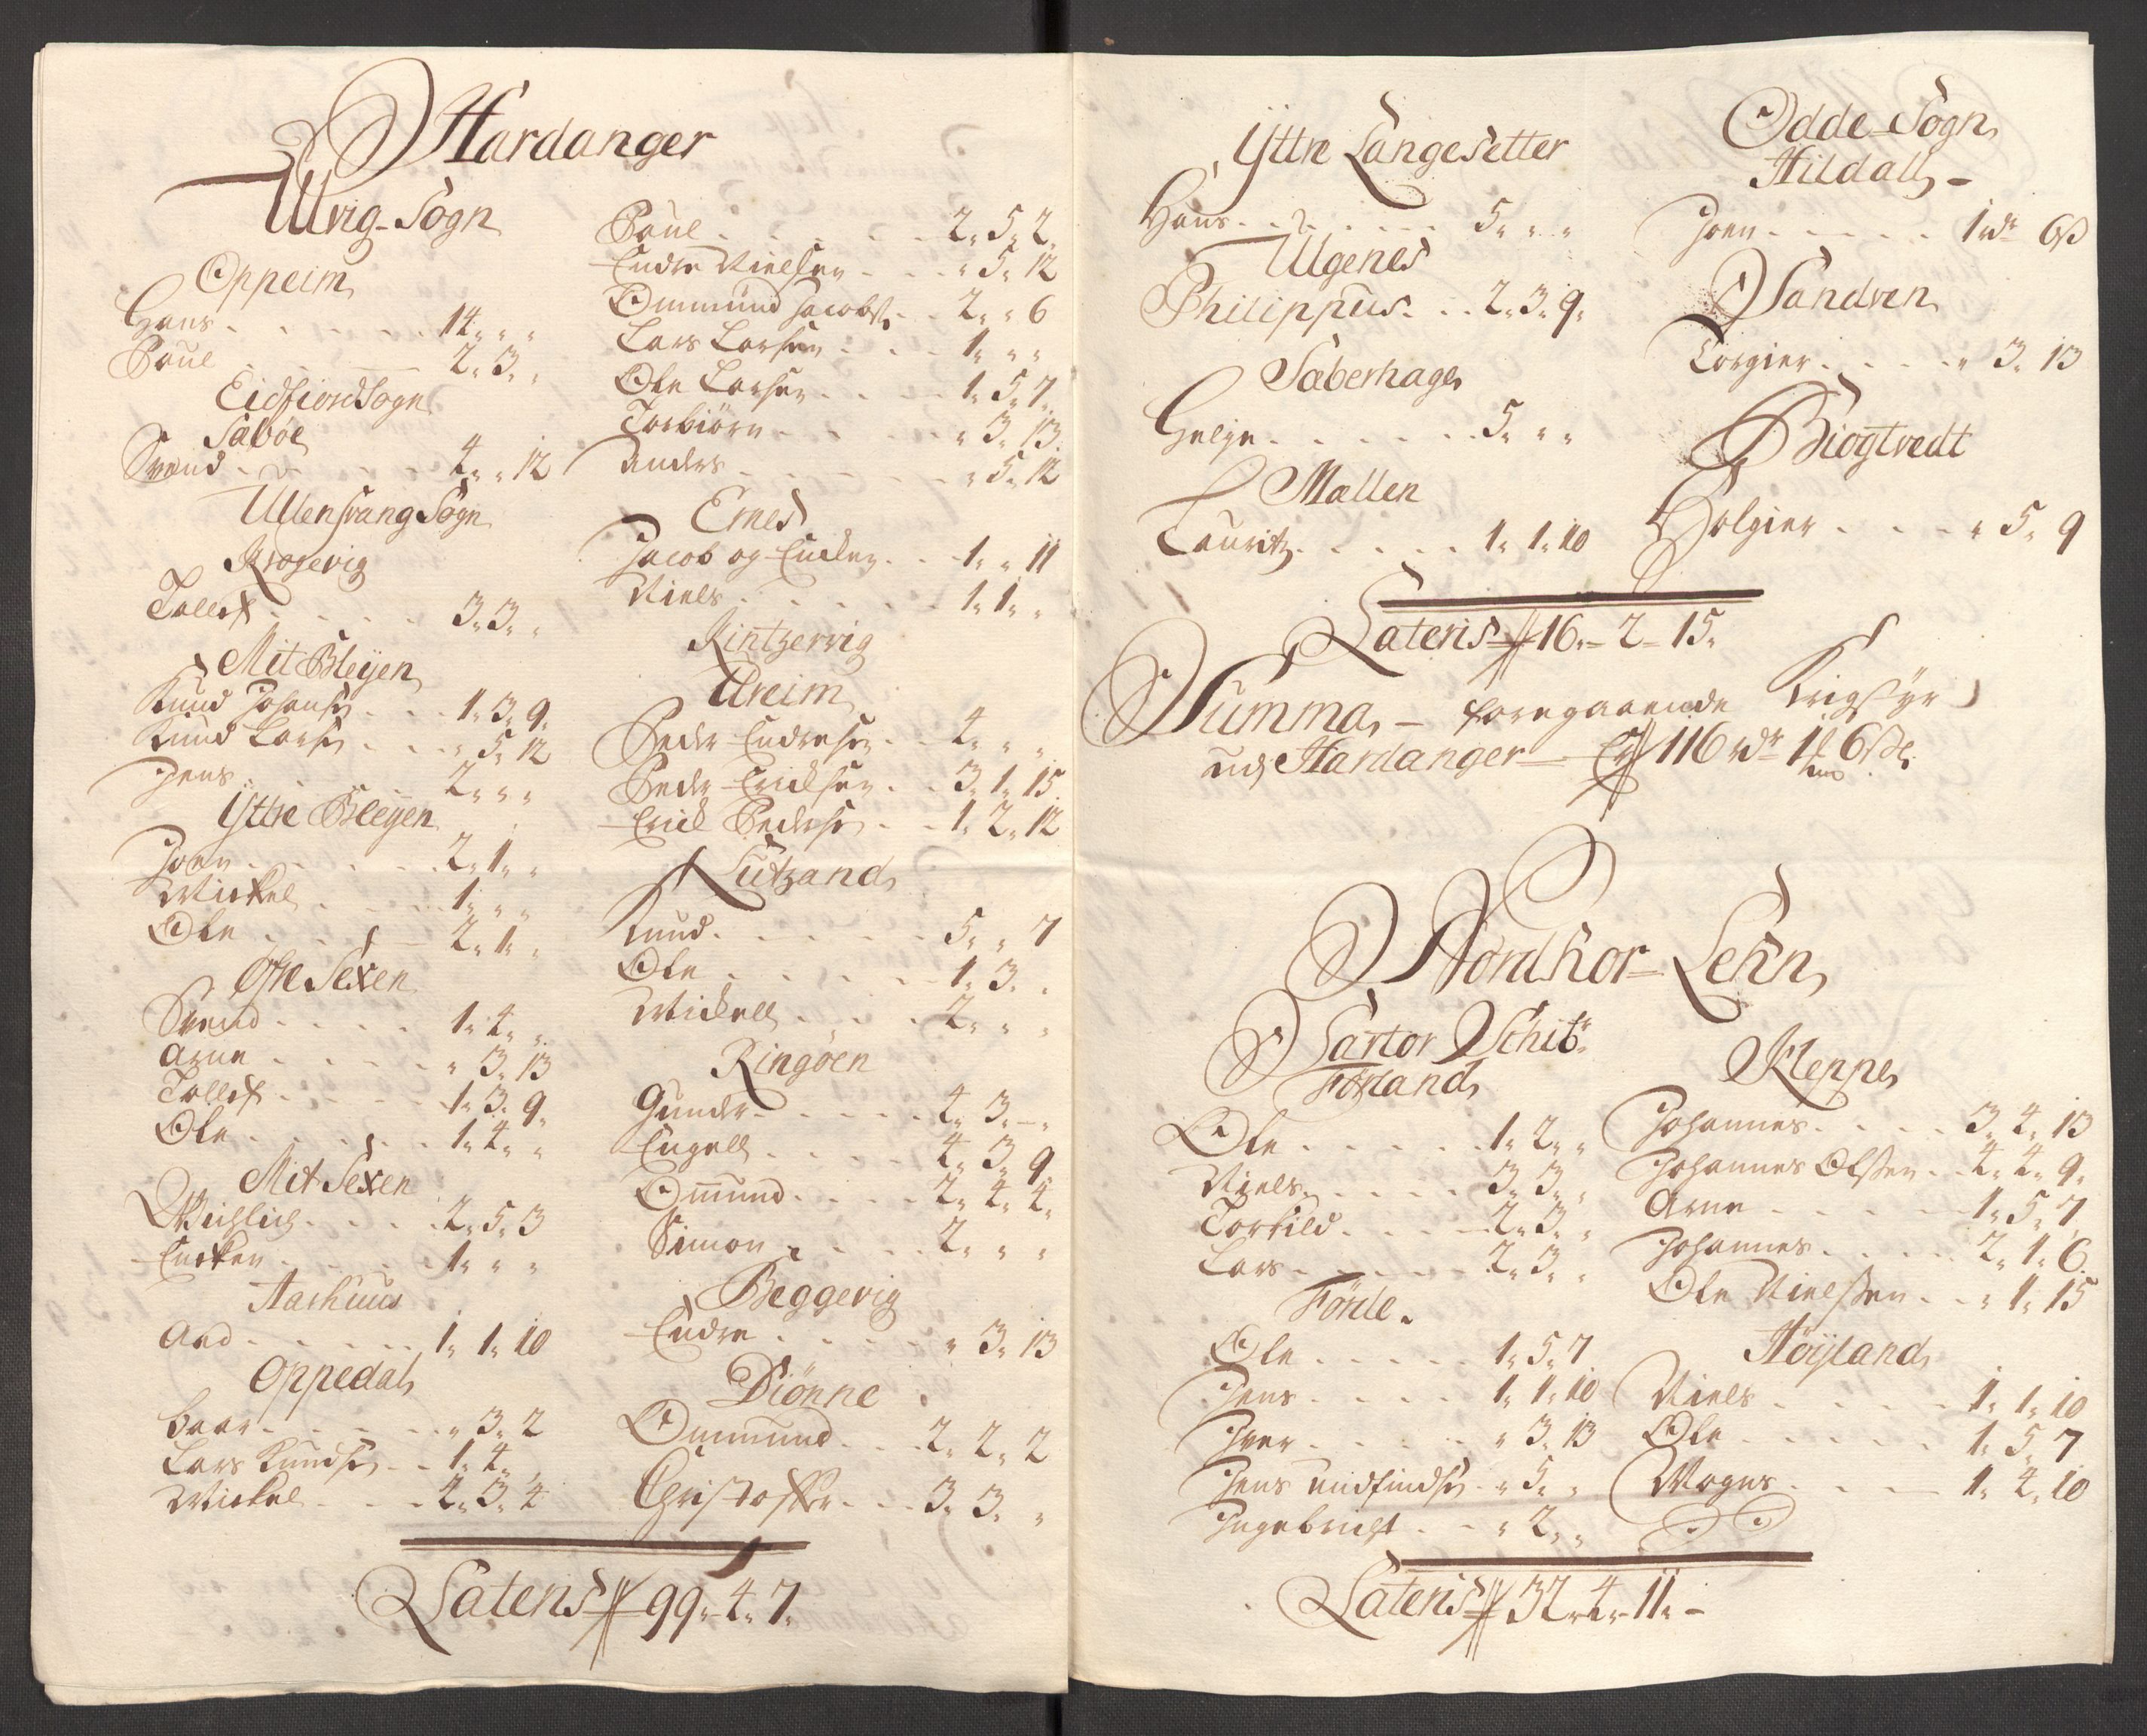 Hardanger
Ulvig Sogn
Oppeim
Hans 14 " "
Poul 2 " 3 "
Eidfiord Sogn
Sæbøe
Svend 4 " " 12
Ullensvang Sogn
Krogevig
Tollef 3 " 3 "
Mit Bleyen
Knud Johans: 1 " 3 " 9
Knud Lars: " 5 " 12
Jens 2 " " "
Yttre Bleyen
Joen 2 " 1 "
Mickel 1 " " "
Ole 2 " 1 "
Øfre Sexen
Svend 1 " 4 "
Arne " 3 " 13
Tollef 1 " 3 " 9
Ole 1 " 4 "
Mit Sexen
2 " 5 " 3
1 " " "
Aarhuus
Aad 1 " 1 " 10
Oppedal
Baar " 3 " 2
Lars Knuds: 1 " 4 "
Mickel 2 " 3 " 4
Poul 2 " 5 " 2
Endre Nielsen " 5 " 12
Ommund Jacobs: 2 " " 6
Lars Larsen 1 " " "
Ole Larsen 1 " 5 " 7
Torbiörn " 3 " 13
Anders " 5 " 12
Ernes
Jacob og Encken 1 " " 11
Niels 1 " 1 "
Kintzervig
Ureim
Peder Endresen 4 " " "
Peder Ericksen 3 " 1 " 15
Erick Peders: 1 " 2 " 12
Lutzand
Knud 5 " " 7
Ole 1 " 3 "
Mickell 2 " " "
Ringøen
Gunder 4 " 3 "
Engell 4 " 3 " 9
Omund 2 " 4 " 4
Simon 2 " " "
Beggevig
Endre " 3 " 13
Diönne
Ommund 2 " 2 " 2
Christoffer 3 " 3 "
Lateris 99 " 4 " 7
Yttre Langesetter
Hans 5 " " "
Ulgenes
Philippus 2 " 3 " 9
Saberhagen
Helje 5 " " "
Mællen
Lauritz 1 " 1 " 10
Odde Sogn
Hildall
Joen 1 rdr 6 ß
Sandven
Torgier " 3 " 13
Biogtvedt
Holgier " 5 " 9
Lateris 16 " 2 " 15
Summa foregaaende Krigstyr
udj Hardanger Er 116 rdr 1 6 ß
Nordhor Lehn
Sartor Schibr
Førland
Ole 1 " 2 "
Niels 3 " 3 "
Torkild 2 " 3 "
Lars 2 " 3 "
Förde
Ole 1 " 5 " 7
Jens 1 " 1 " 10
Iver " 3 " 13
Jens " 5 "
Ingebricht " 2 "
Kleppe
Johannes 3 " 4 " 13
Johannes Olsen 4 " 4 " 9
Arne 1 " 5 " 7
Johannes 2 " 1 " 6
Ole Nielsen " 1 " 15
Höyland
Niels 1 " 1 " 10
Ole 1 " 5 " 7
Mogns 1 " 4 " 10
Lateris 37 " 4 " 11